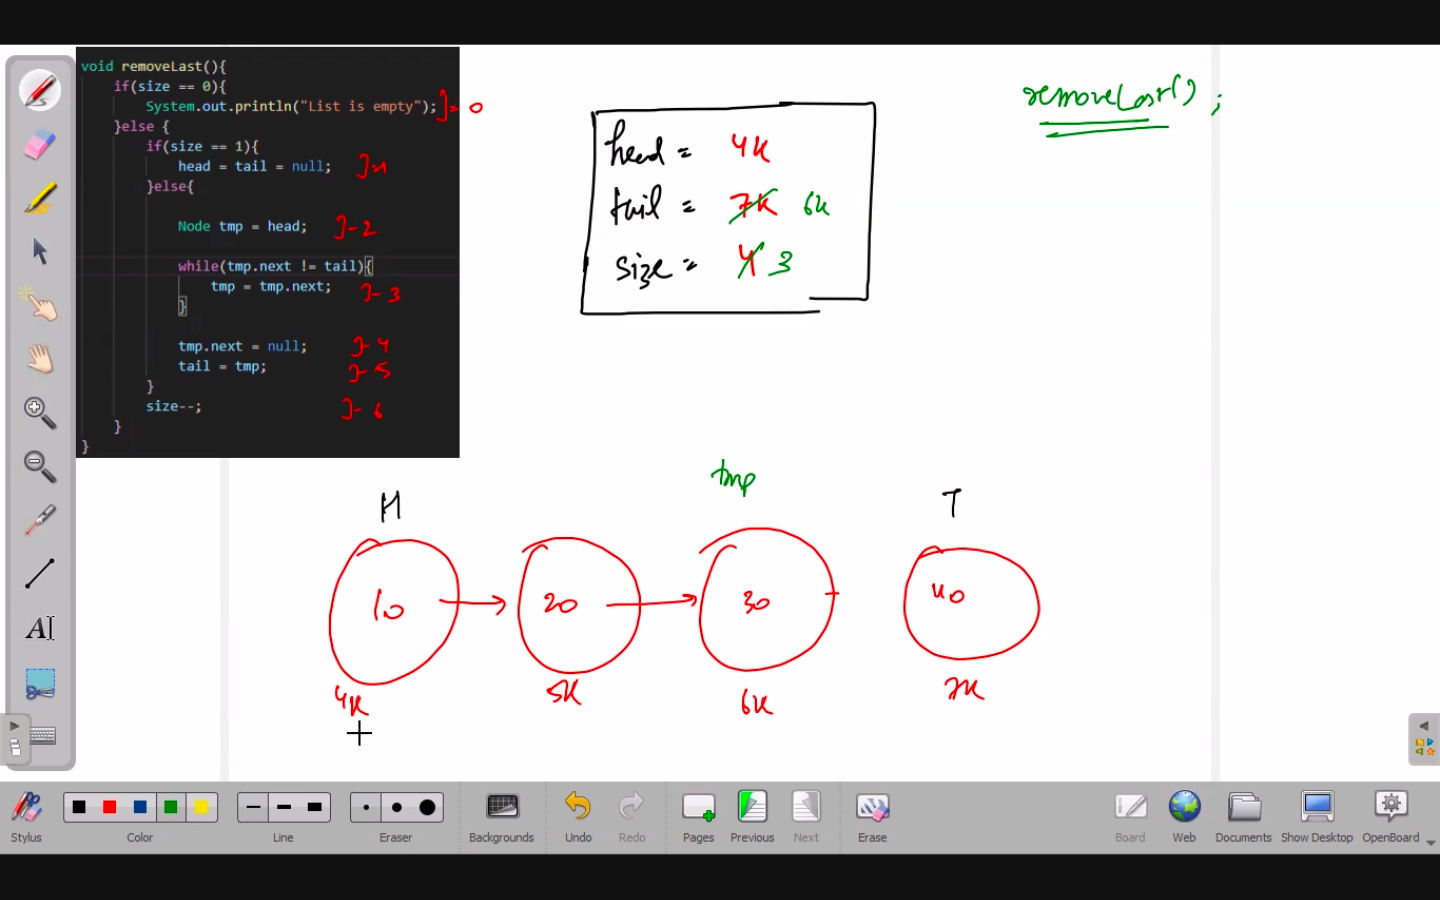 void removeLast(){
if(size == 0){
System.out.println("List is empty"); ]= 0
}else {
if(size == 1){
head = tail = null; ]-1
}else{
Node tmp = head; ]-2
while(tmp.next != tail){
tmp = tmp.next; ]-3
}
tmp.next = null; ]-4
tail = tmp; ]-5
}
size--; ]-6
}
}
removeLast();
head = 4K
tail = 7K 6K
size = 4 3
tmp
H T
10 20 30 40
4K 5K 6K 7K
Stylus Color Line Eraser Backgrounds Undo Redo Pages Previous Next Erase Board Web Documents Show Desktop OpenBoard